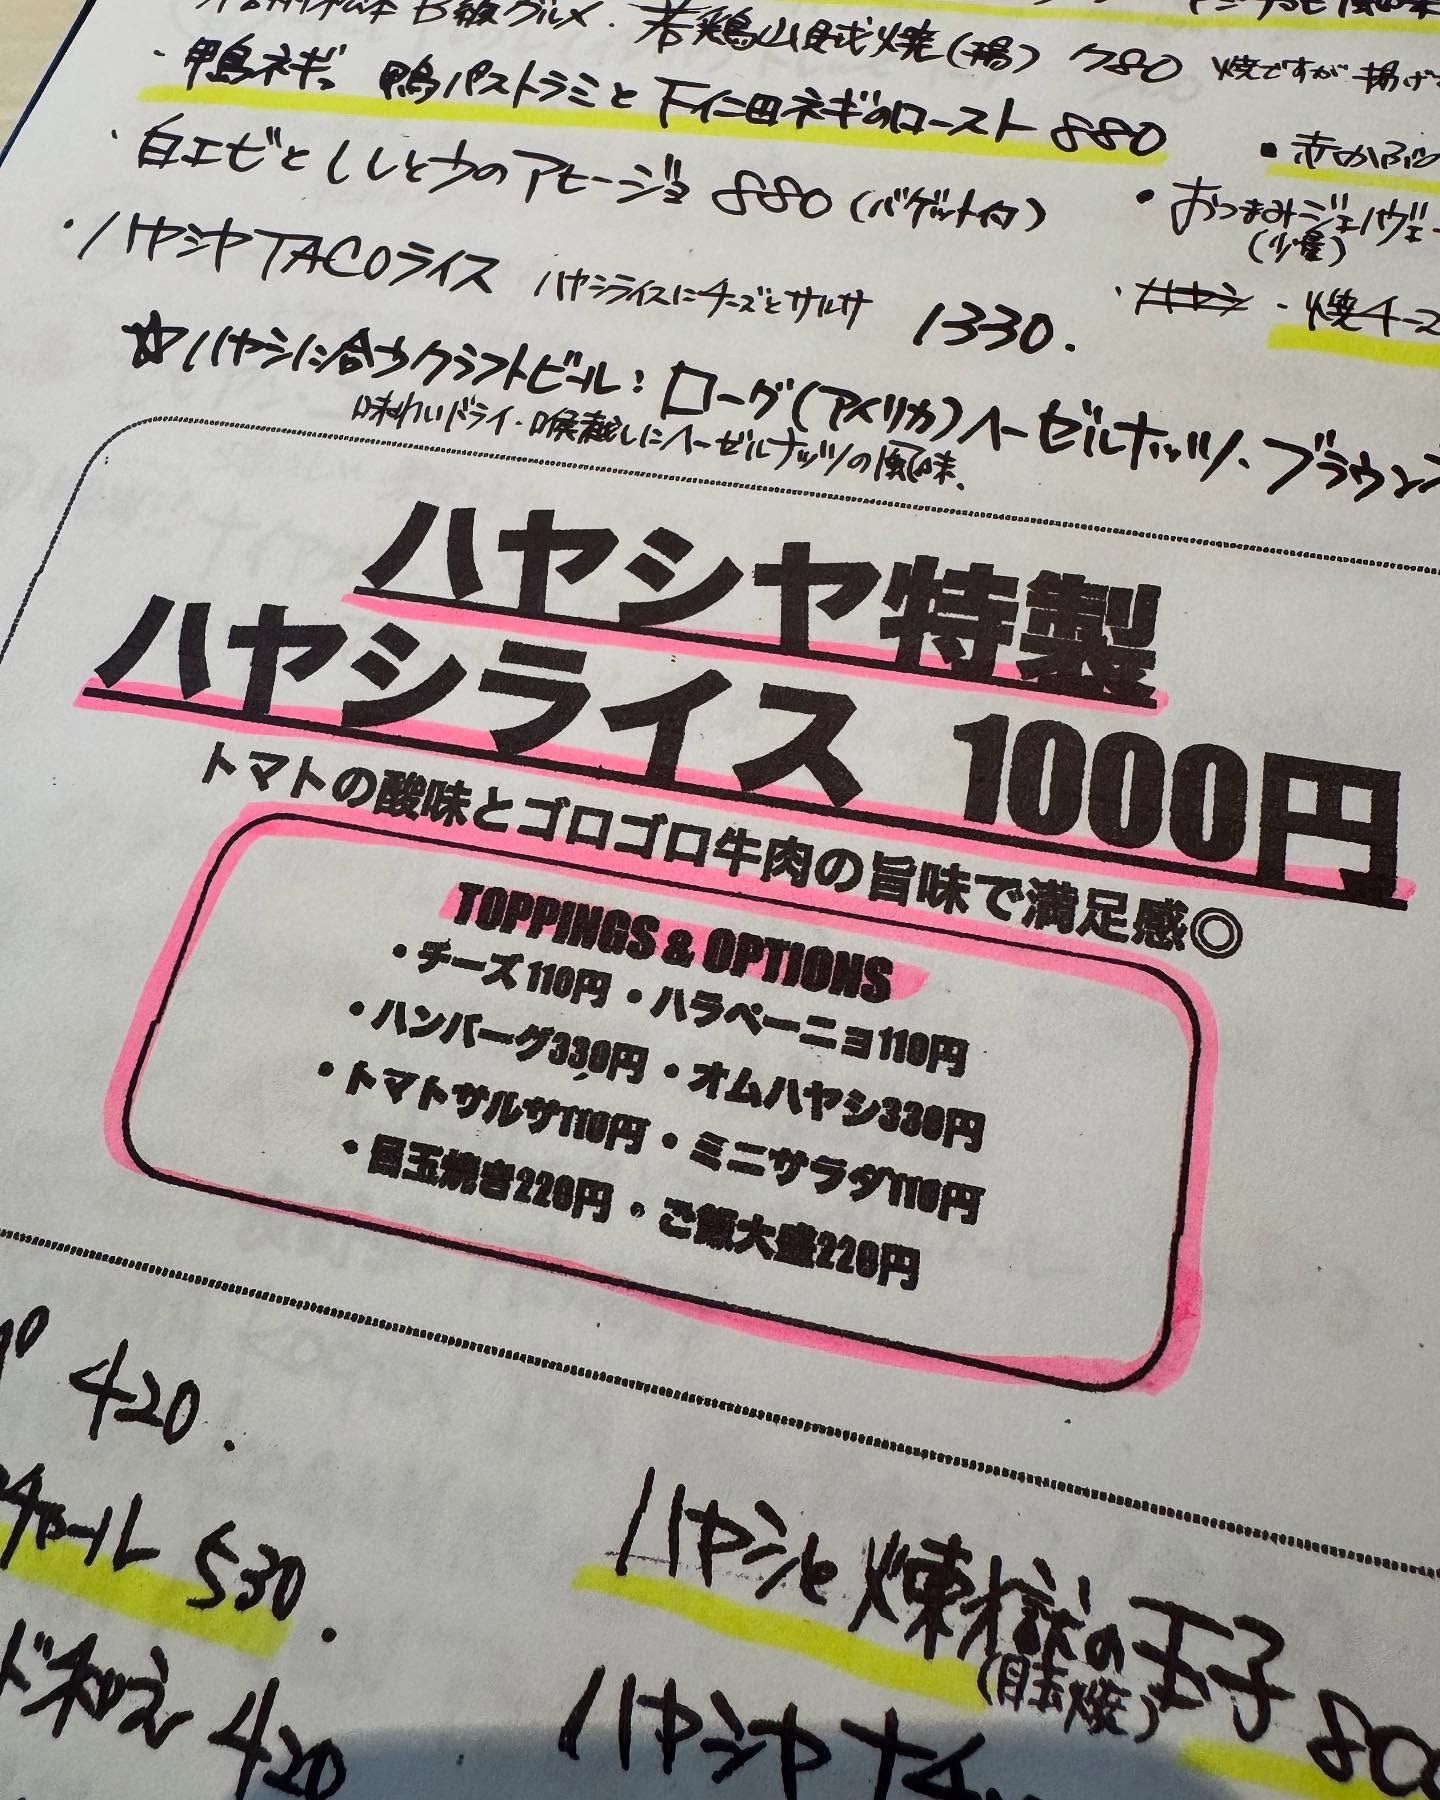 B級グルメ・若鶏山賊焼(揚) 780 焼ですが揚げ
・鴨ネギ。鴨パストラミと下仁田ネギのロースト 880
・赤かぶ
・白エビとししとうのアヒージョ 880 (バゲット付)
・おつまみジェノヴェー
(少量)
・ハヤシヤTACOライス ハヤシライスにチーズとサルサ 1330.
・焼チーズ
☆ハヤシに合うクラフトビール:ローグ(アメリカ)ヘーゼルナッツ、ブラウン
味わいドライ・喉越しにヘーゼルナッツの風味、
ハヤシヤ特製
ハヤシライス 1000円
トマトの酸味とゴロゴロ牛肉の旨味で満足感◎
TOPPINGS & OPTIONS
・チーズ110円・ハラペーニョ110円
・ハンバーグ330円・オムハヤシ330円
・トマトサルサ110円・ミニサラダ110円
・目玉焼き220円・ご飯大盛220円
420.
530.
ド和え 420
ハヤシと煉獄の玉子 800
(目玉焼)
ハヤシヤナ